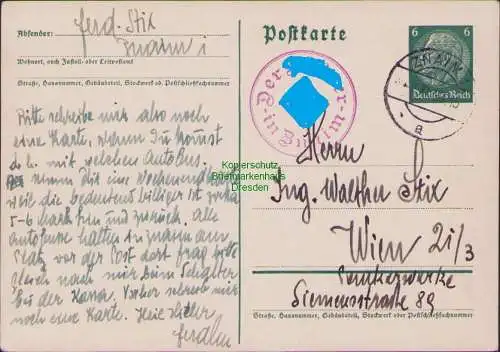 Absender: Ferd. Stix
Znaim i
Wohnort, auch Zustell- oder Leitpostamt
Straße, Hausnummer, Gebäudeteil, Stockwerk od. Postschließfachnummer
Bitte schreibe mir also noch
eine Karte, wann Du kommst
d. h. mit welchem Autobus.
nimm Dir eine Wochenend
weil die bedeutend billiger ist
5-6 Mark hin und zurück. Alle
Autobusse halten in Znaim am
Platz vor der Post dort frag bitte
gleich nach mir beim Schalter
bei der Kassa. Vorher schreib mir
noch eine Karte. Heil Hitler
Ferdl
Postkarte
6 6
Deutsches Reich
ZNAIM
a
Der
in
Kopierschutz
Briefmarkenhaus
Dresden
Herrn
Ing. Walther Stix
Wien 21/3
Siemensstraße 89
Straße, Hausnummer, Gebäudeteil, Stockwerk oder Postschließfachnummer